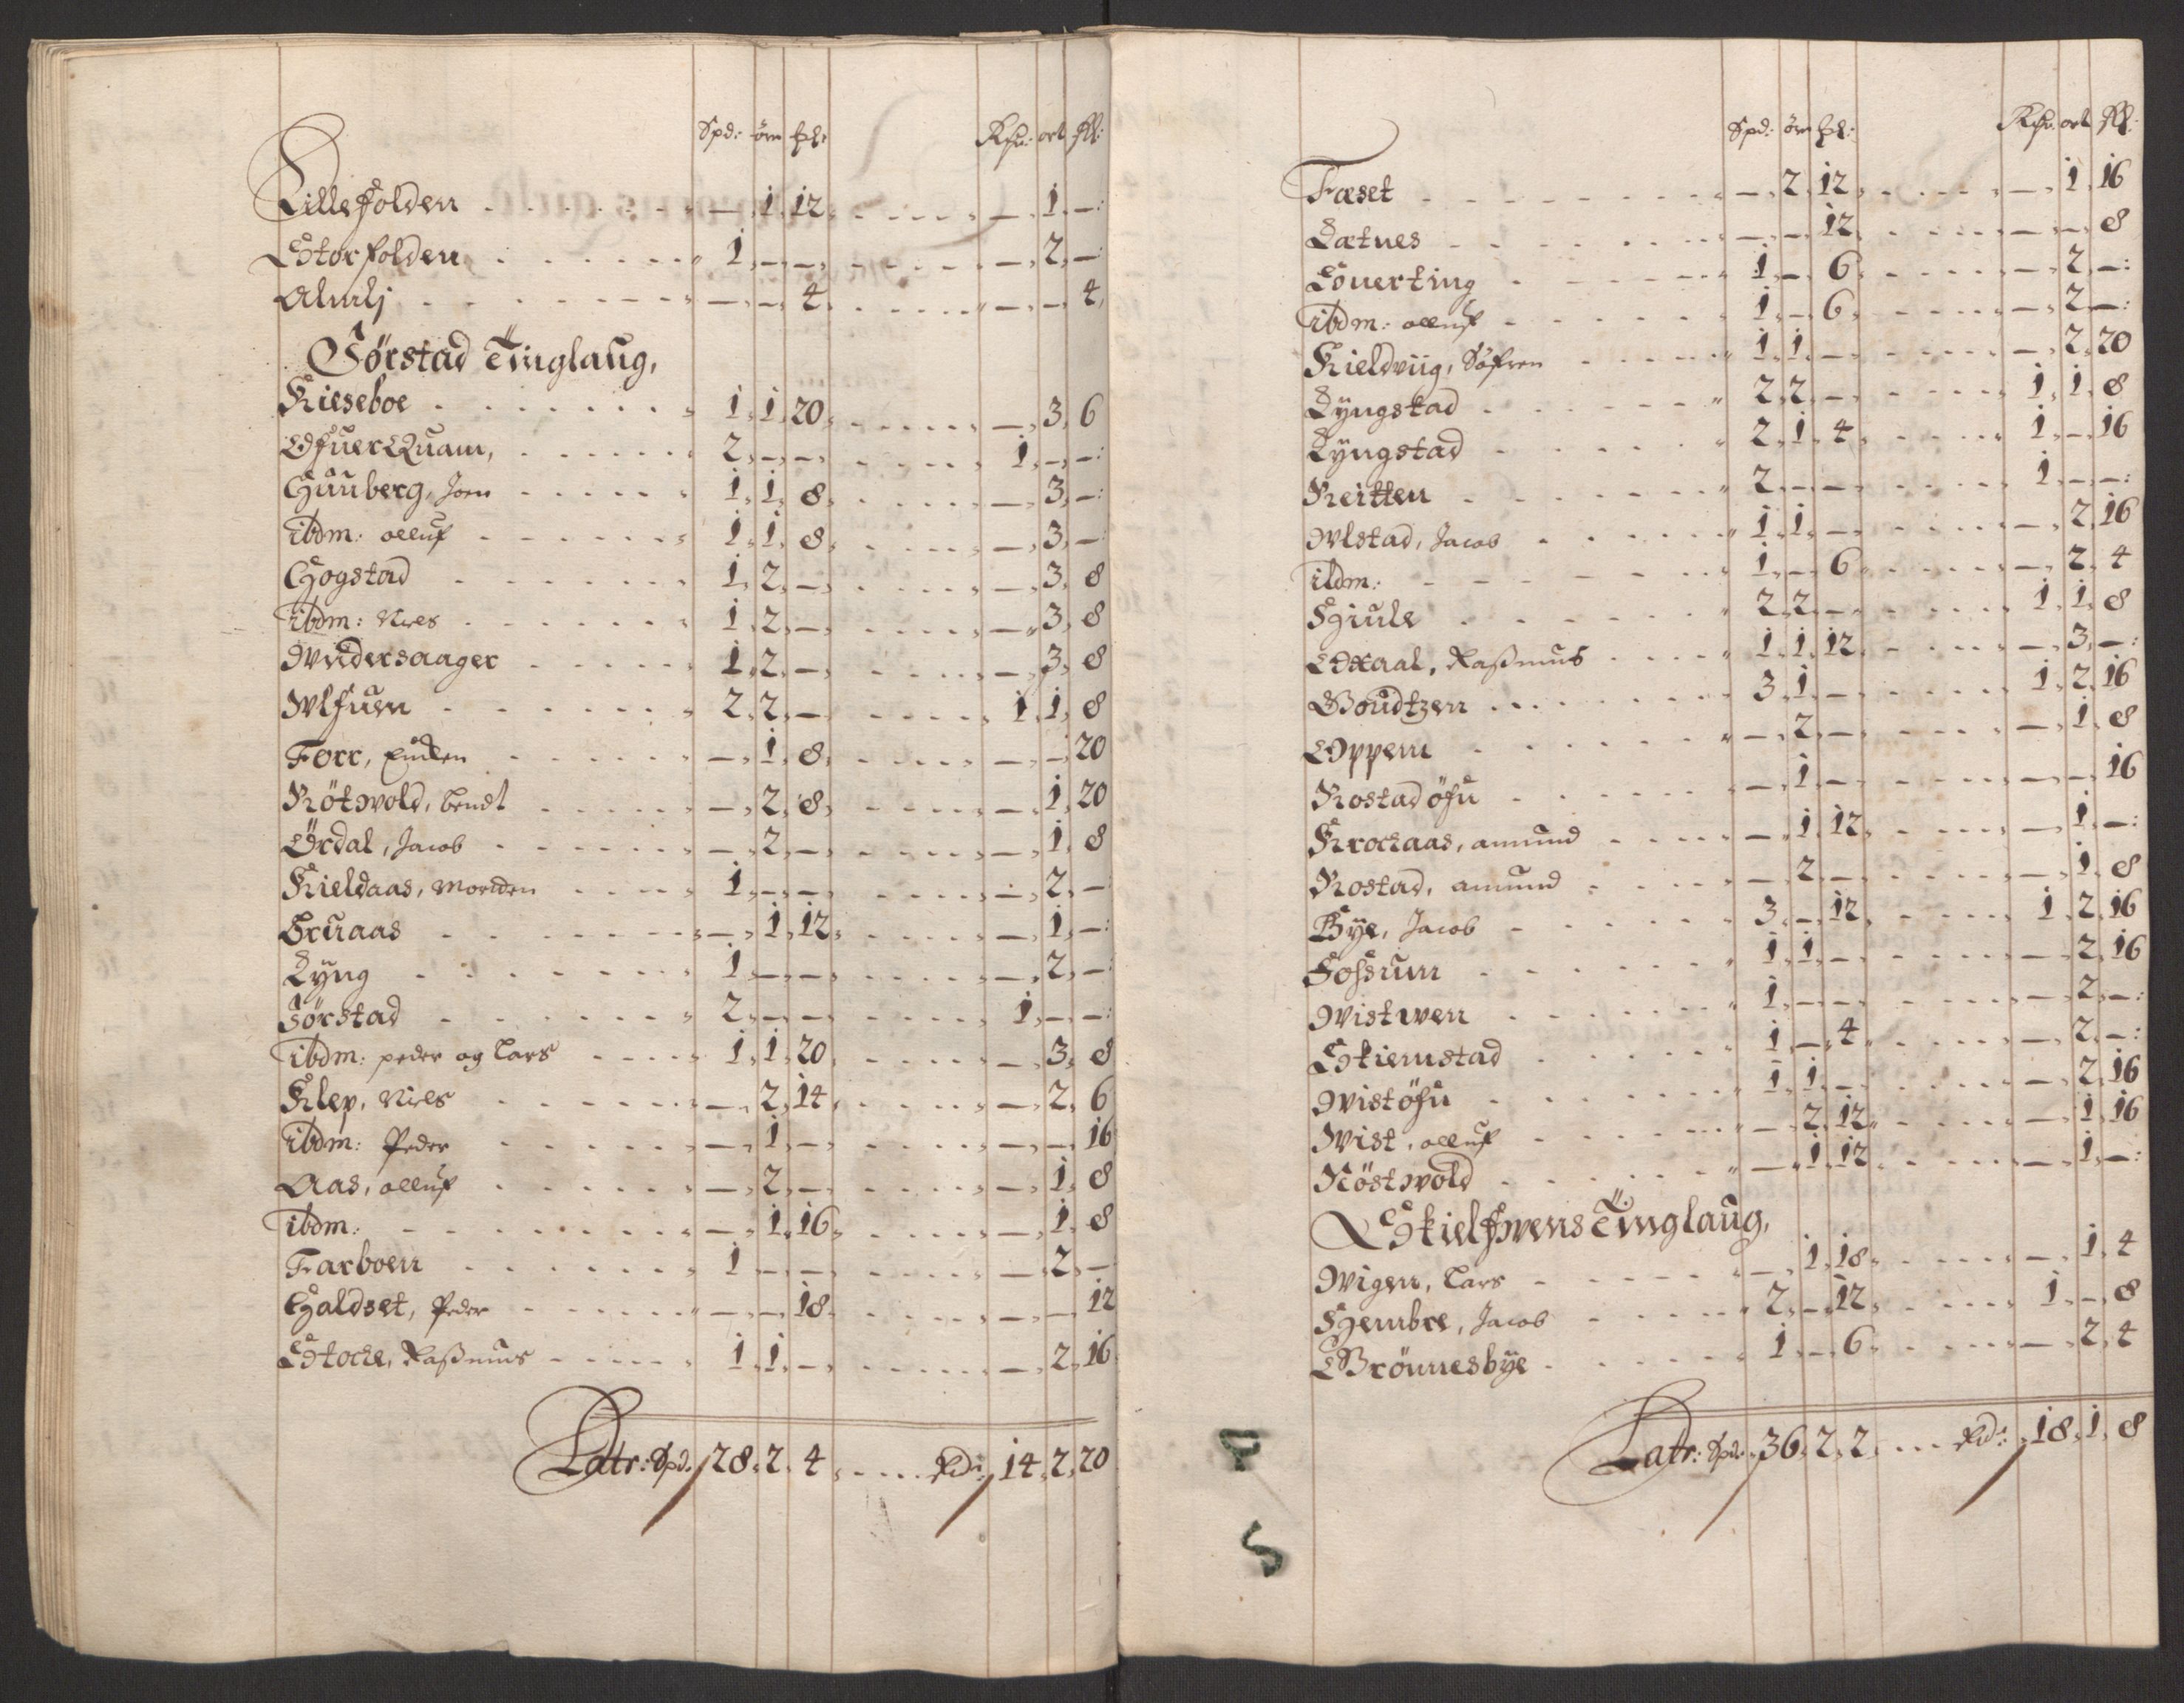 Spd: ører ℔: Rdr: ort ß:
Lillefolden - 1 12 - 1 -
Storfolden 1 - - - 2 -
Almlj - - 4 - - 4
Förstad Tinglaug,
Kieseboe 1 1 20 - 3 6
OfuerQuam, 2 - - 1 - -
Guuberg, Joen 1 1 8 - 3 -
ibdm: olluf 1 1 8 - 3 -
Gogstad 1 2 - - 3 8
ibdm: Niels 1 2 - - 3 8
Wndersaager 1 2 - - 3 8
Wlfuen 2 2 - 1 1 8
Forr, - 1 8 - - 20
Rötwold, bendt - 2 8 - 1 20
Ördal, Jacob - 2 - - 1 8
Kieldaas, Morten 1 - - - 2 -
Bruaas - 1 12 - 1 -
Lyng 1 - - - 2 -
Förstad 2 - - 1 - -
ibdm: peder og Lars 1 1 20 - 3 8
Klep, Niels - 2 14 - 2 6
ibdm: Peder - 1 - - - 16
Aas, olluf - 2 - - 1 8
ibdm: - 1 16 - 1 8
Farboen 1 - - - 2 -
Galdset, Peder - - 18 - - 12
Stocke, Raßmus 1 1 - - 2 16
Latr: Spd. 28. 2. 4 Rdr. 14. 2. 20
Spd: ører ℔: Rdr: ort ß:
Fæset - 2 12 - 1 16
Lætnes - - 12 - - 8
Löuerting 1 - 6 - 2 -
ibdm: olluf 1 - 6 - 2 -
Kieldviig, Söfren 1 1 - - 2 20
Lyngstad 2 2 - 1 1 8
Lyngstad 2 1 4 1 - 16
Reitten 2 - - 1 - -
Wlstad, Jacob 1 1 - - 2 16
ildm: 1 - 6 - 2 4
Hiule 2 2 - 1 1 8
Oxaal, Raßmus 1 1 12 - 3 -
Goudtzen 3 1 - 1 2 16
Oppem - 2 - - 1 8
Rostad öfu - 1 - - - 16
Krockaas, amund - 1 12 - 1 -
Rostad, amund - 2 - - 1 8
Bye, Jacob 3 - 12 1 2 16
Fossum 1 1 - - 2 16
Wistwen 1 - - - 2 -
Skiemstad 1 - 4 - 2 -
Wistöfu 1 1 - - 2 16
Wist, olluf - 2 12 - 1 16
Nöstwold - 1 12 - 1 -
Skielfwens Tinglaug,
Wigen, Lars - 1 18 - 1 4
Hembre, Jacob 2 - 12 1 - 8
Brönnesbye 1 - 6 - 2 4
Latr: Spd: 36. 2. 2 Rdr: 18. 1. 8